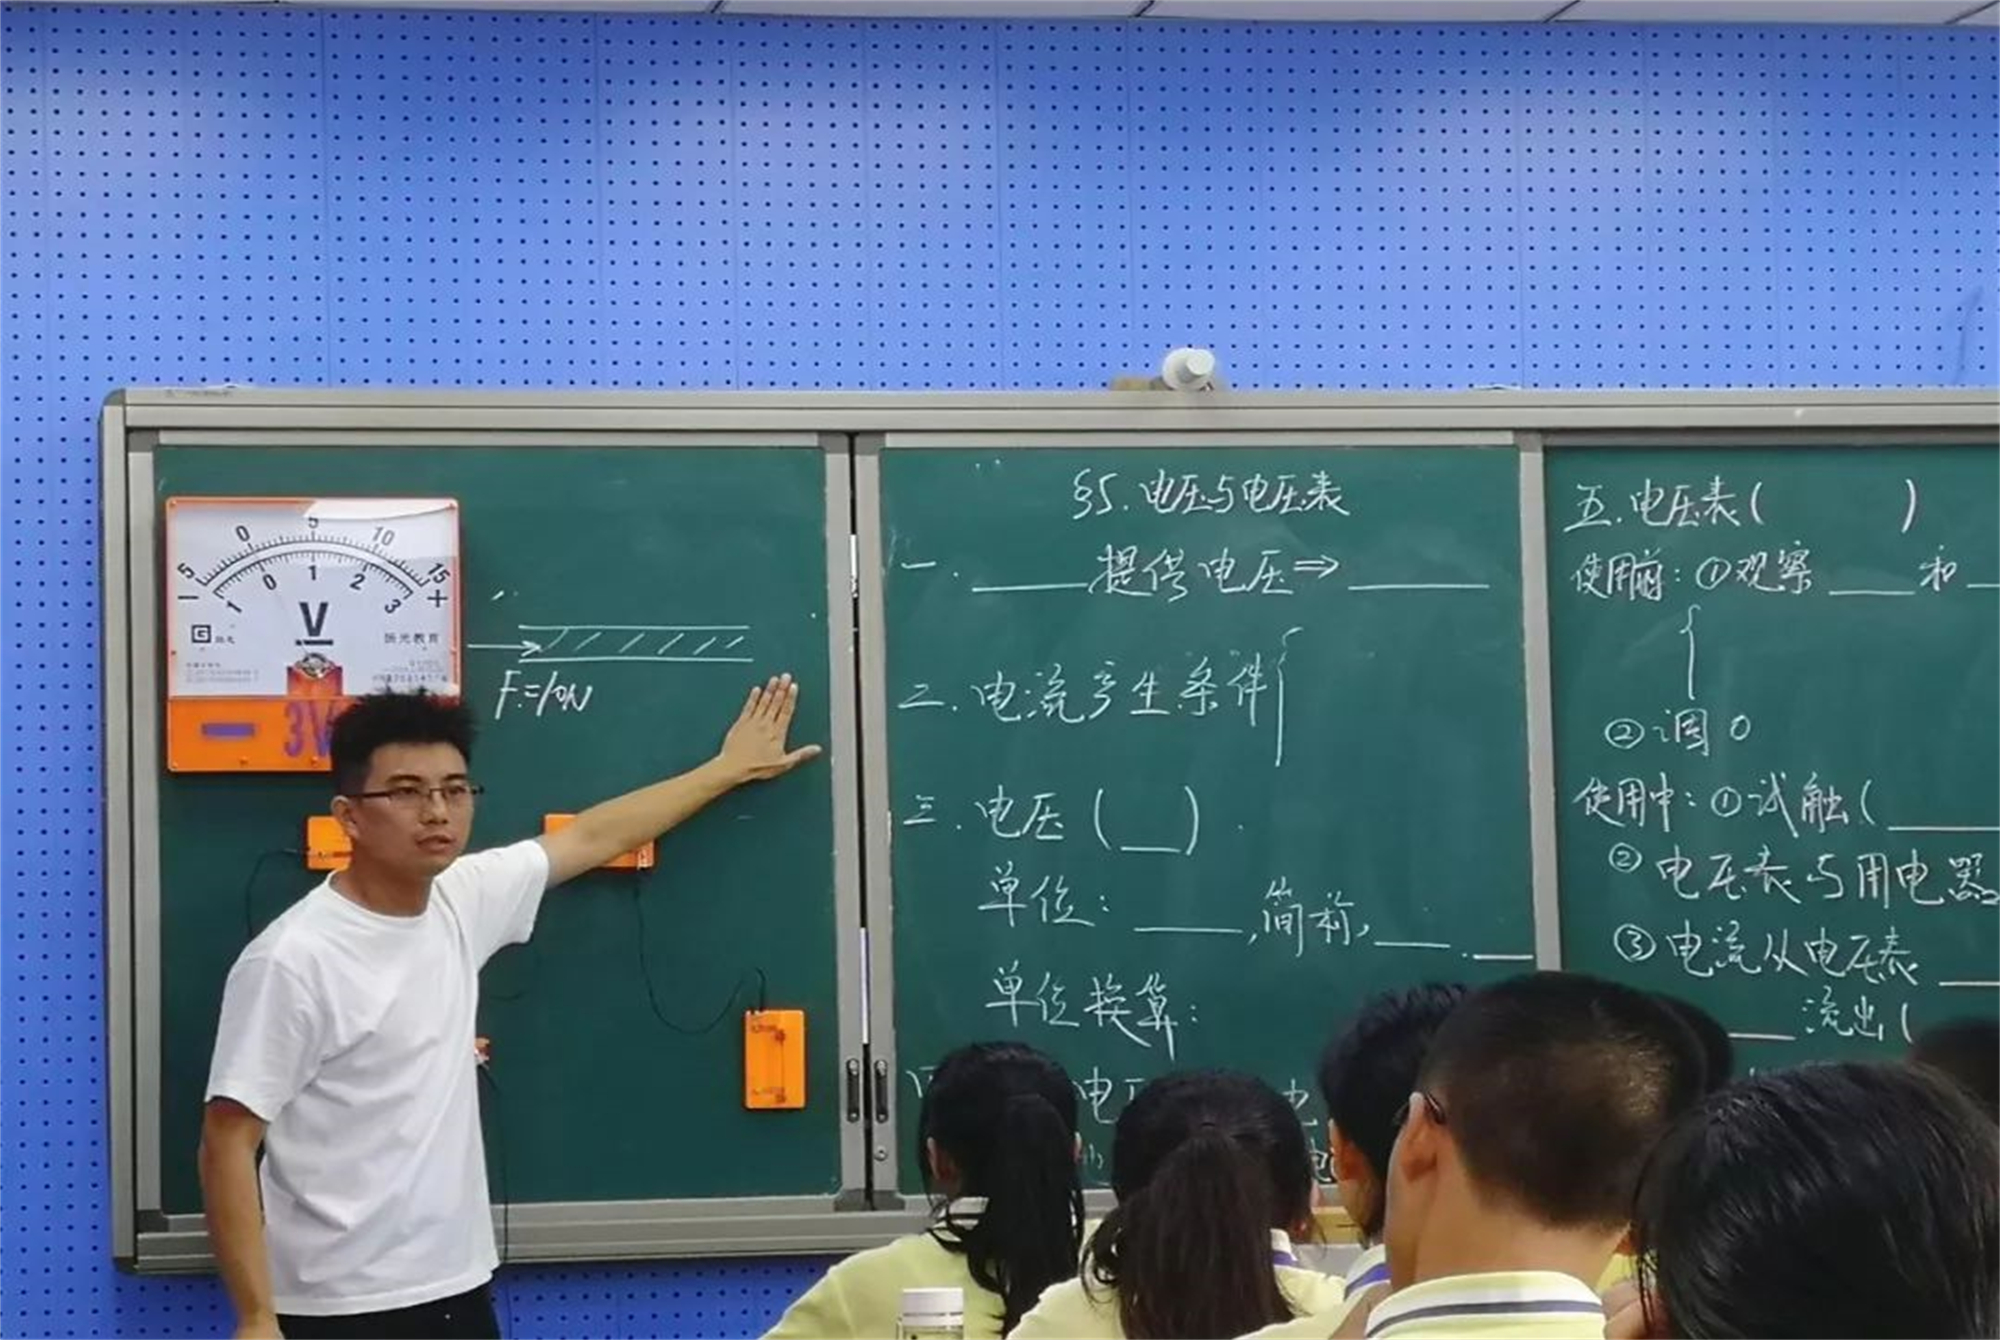 5 0 5 10 15
− 1 0 1 2 3 +
V
扬光教育
3V
F=10N
§5.电压与电压表
一.____提供电压⇒____
二.电流产生条件{
三.电压(__)
单位:____,简称,___.__
单位换算:
五.电压表( )
使用前:①观察___和_
②调0
使用中:①试触(____
②电压表与用电器
③电流从电压表__
__流出(